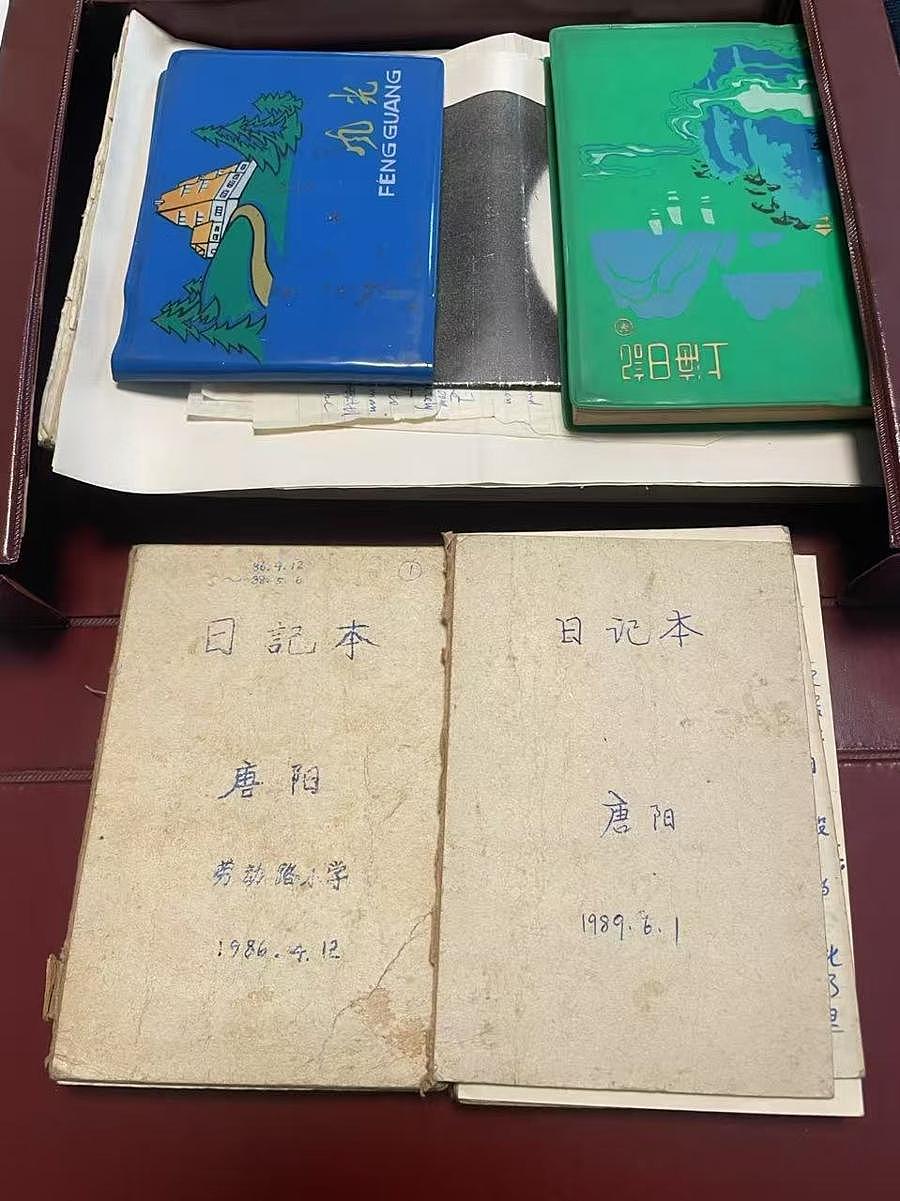 风光
FENGGUANG
上海日记
86.4.12
~88.5.6
①
日記本
唐阳
劳动路小学
1986.4.12
日记本
唐阳
1989.6.1